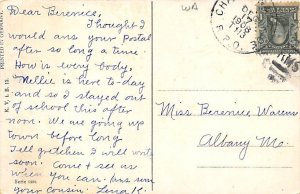 Dear Berenice,
Thought I
would ans your Postal
after so long a time.
How is every body.
Nellie is here to-day
and so I stayed out
of school this after
noon. We are going up
town before long.
Tell Gretchen I will writ
soon. Come & see us
when you can. ans sure
your cousin. Lena K.
WA
Miss Berenice Warens
Albany Mo.